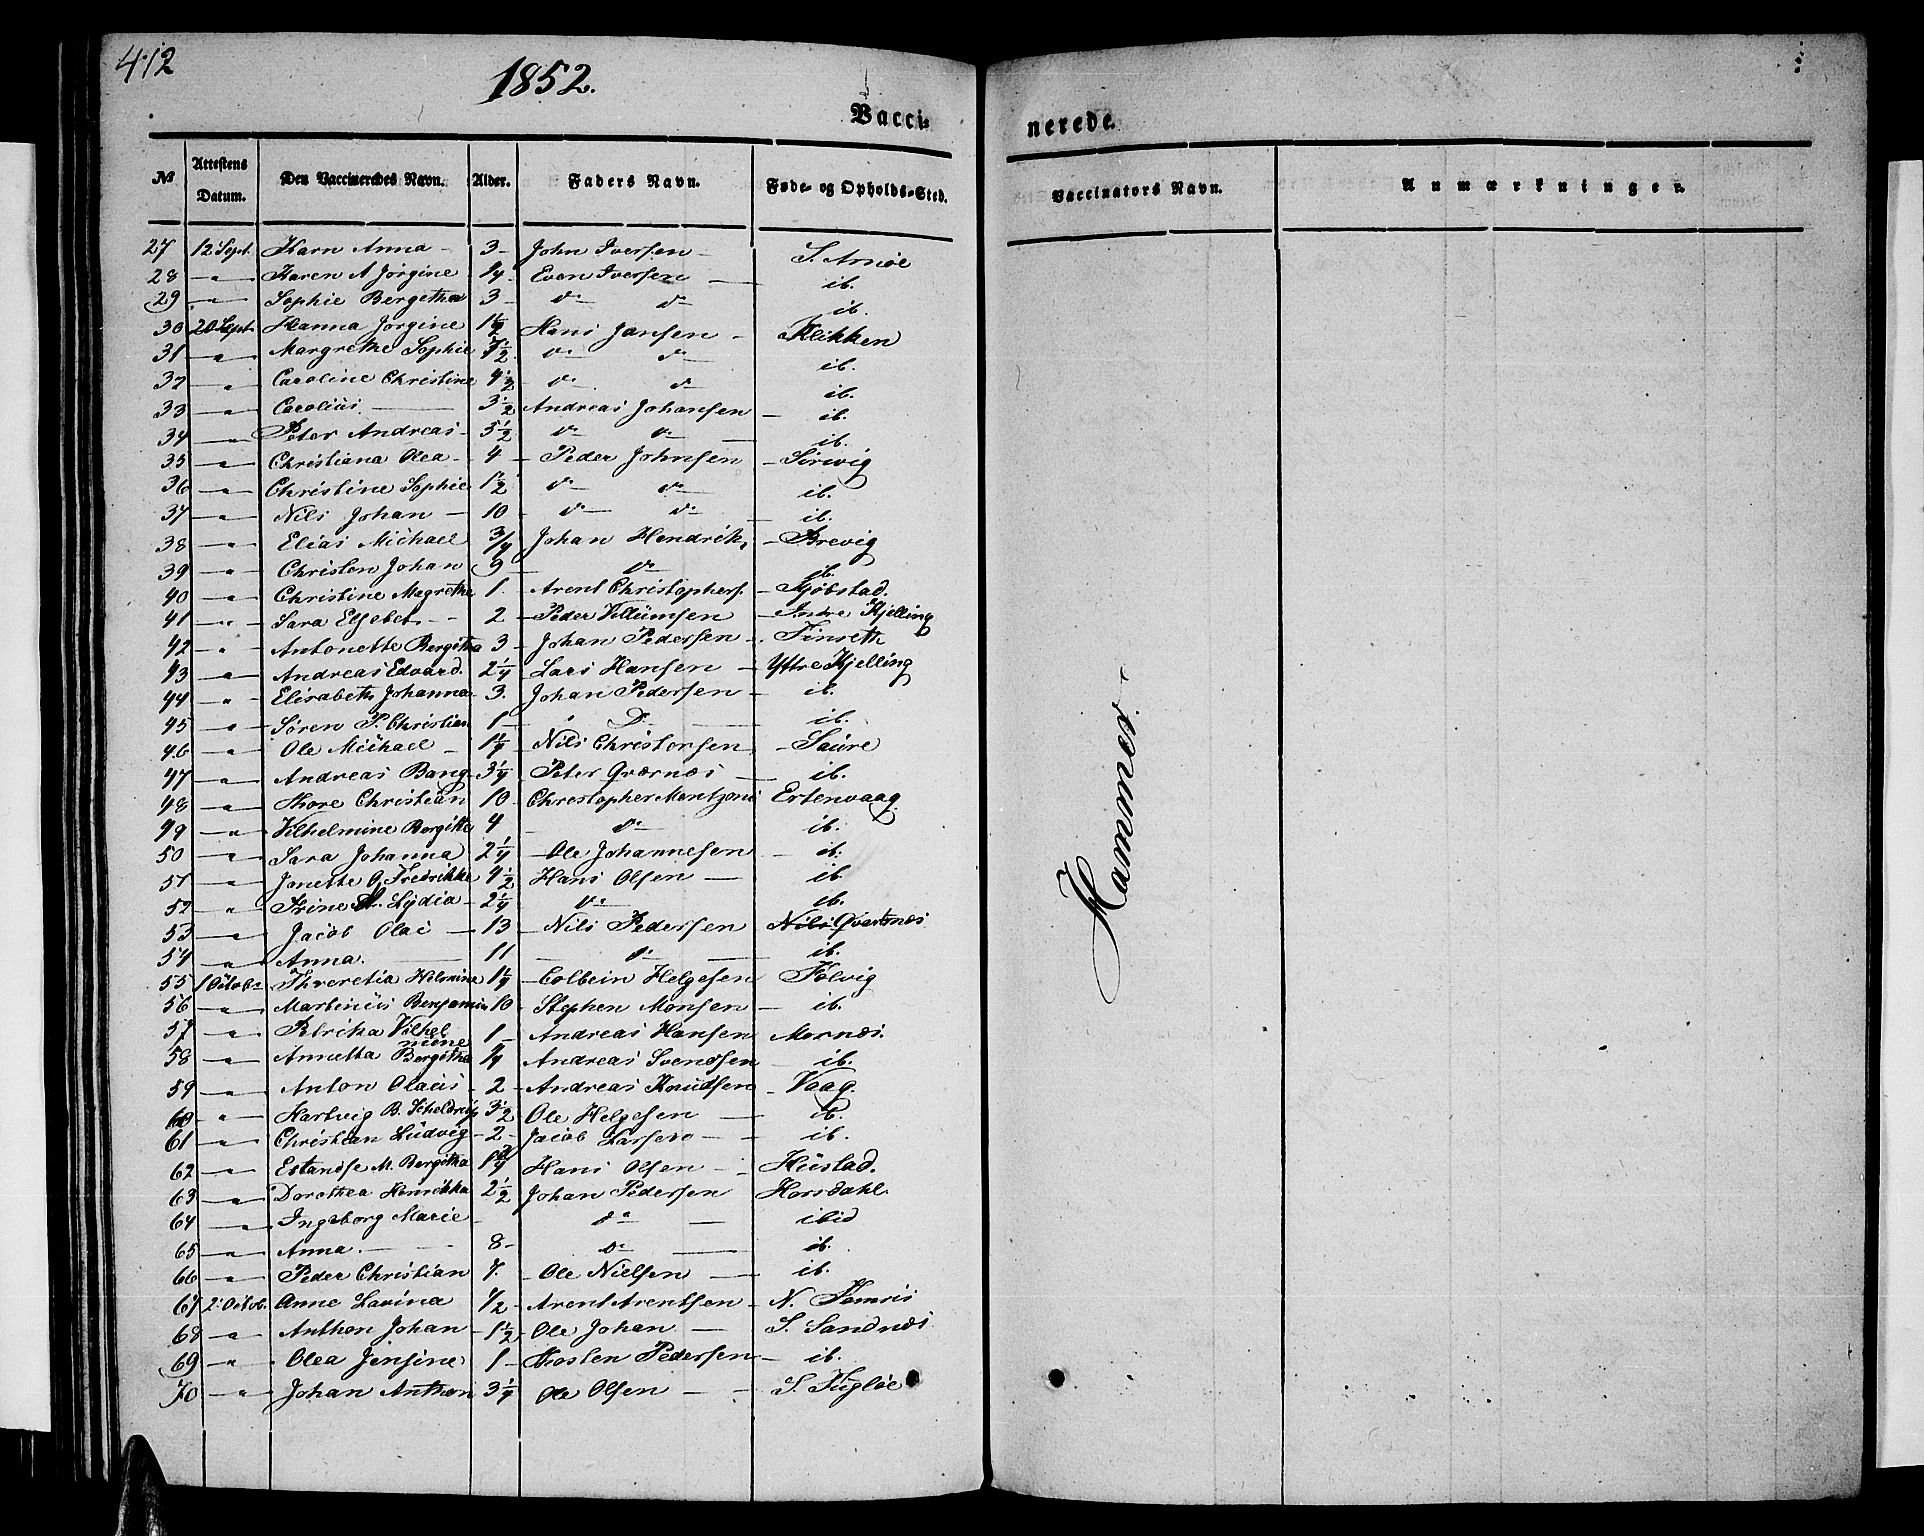 412
1852.
Vacci=
nerede.
№ Attestens Datum. Den Vaccineredes Navn. Alder. Faders Navn. Føde- og Opholds-Sted. Vaccinators Navn. Anmærkninger.
27 12 Sept. Karn Anna - 3 - John Iversen - S. Arnøe
28 - " - Karen A Jörgine 1/4 - Even Iversen - ib.
29 - " - Sophie Bergetha 3 - do do ib.
30 20 Sept. Hanna Jorgine 1 1/2 Hans Jansen - Klikken
31 " Margrethe Sophie 7 1/2 do do ib.
32 " Caroline Christine 4 1/2 do do ib.
33 " Carolius - 3 1/2 Andreas Johansen - ib.
34 - " - Peter Andreas - 5 1/2 do do ib.
35 - " - Christiana Olea - 4 - Peder Johnsen - Sörvig
36 - " - Christine Sophie 1 1/2 do do ib.
37 - " - Nils Johan - 10 - do do ib.
38 - " - Elias Michael 3/4 Johan Hendrik, - Brevig
39 - " - Christen Johan 9 - do ib.
40 - " - Christine Magrethe 1. Arent Christophers. - Kjöbstad.
41 - " - Sara Elsebet. - 2 - Peder Villumsen - Indre Kjelling
42 " Antonette Bergitha 3 - Johan Pedersen - Finseth
43 - " - Andreas Edvard. 2 1/4 - Lars Hansen - Yttre Kjelling
44 - " - Elisabeth Johanna - 3. Johan Pedersen - ib.
45 - " - Søren P. Christian 1 - Do ib.
46 - " - Ole Michael - 1 1/4 Nils Christensen - Saure
47 - " - Andreas Bang - 3 1/4 - Peter Qvernæs - ib.
48 - " - Thore Christian 10 Christopher Mentzoni Ertenvaag
49 - " - Vilhelmine Bergitte 4 - do ib.
50 - " - Sara Johanna 2 1/4 - Ole Johannesen - ib.
51 - " - Janette G. Fredrikke 4 1/2 Hans Olsen - ib
52 - " - Trine M. Lydia - 2 1/4 do ib.
53 - " - Jacob Olai - 13 - Nils Pedersen Qvernæs
54 - " - Anna. - 11 - do ib.
55 1 Octobr Helmine 1 1/4 - Colbein Helgesen Følvig
56 - " - Martinus Benjamin 10 - Stephen Monsen - ib.
57 - " - Ulrika Vilhelmine 1 - Andreas Hansen Mornæs.
58 - " - Annetta Bergitha 1/4 - Andreas Svendsen ib.
59 - " - Anton Olaus - 2 - Andreas Knudsen - Vaag.
60 - " - Hartvig B. Scheldrup 3 1/2 Ole Helgesen - ib.
61 - " - Christian Ludvig - 2 - Jacob Larsen - ib.
62 - " - M. Bergitha 1 3/4 - Hans Olsen - Hustad.
63 - " - Dorothea Henrikka 2 1/2 Johan Pedersen Horsdahl.
64 - " - Ingeborg Marie - do - ibid
65 - " - Anna. - 8 - do - ib.
66 - " - Peder Christian 7. - Ole Nielsen - ib.
67 2 Octob. Anne Lavina 1/2 - Arent Arentsen - N.
68 - " - Anthon Johan - 1 1/2 - Ole Johan - S. Sandnæs
69 - " - Olea Jensine 1 - Thosten Pedersen - ib.
70 - " - Johan Anthon 3 1/4 - Ole Olsen - S. Fugløe
Hammer.